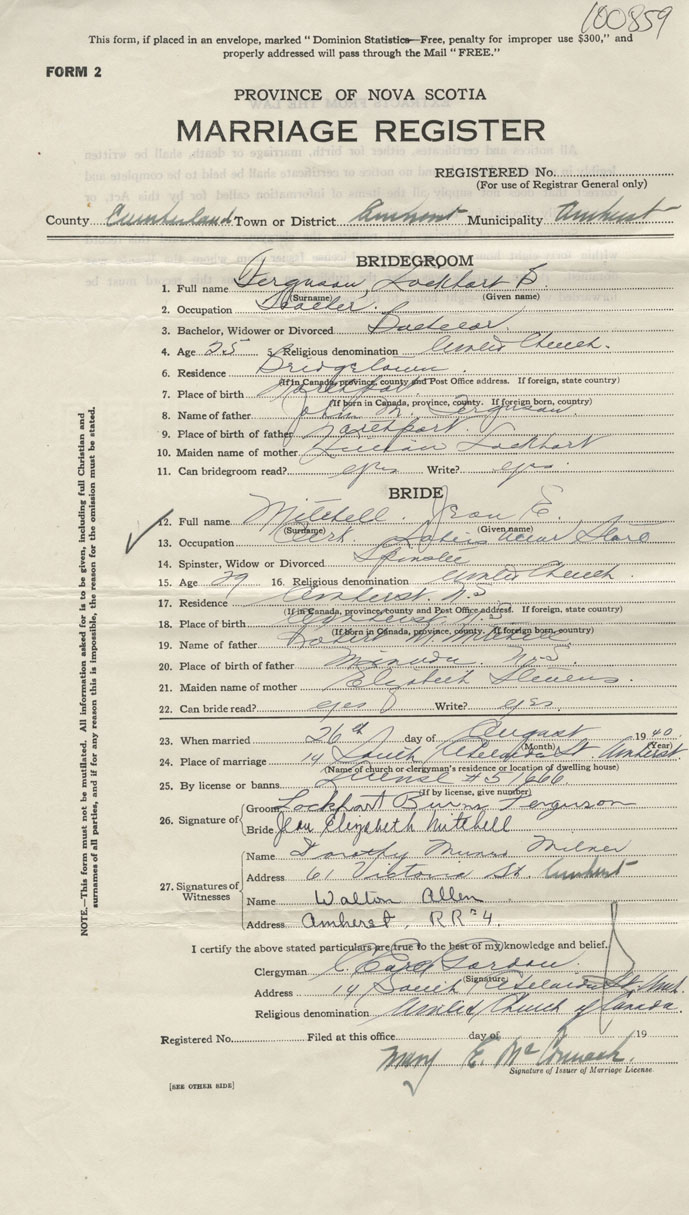 100859
This form, if placed in an envelope, marked "Dominion Statistics—Free, penalty for improper use $300," and
properly addressed will pass through the Mail "FREE."
FORM 2
PROVINCE OF NOVA SCOTIA
MARRIAGE REGISTER
REGISTERED No.
(For use of Registrar General only)
County Cumberland Town or District Amherst Municipality Amherst
BRIDEGROOM
1. Full name Ferguson, Lockhart B.
(Surname) (Given name)
2. Occupation
3. Bachelor, Widower or Divorced Bachelor.
4. Age 25 5. Religious denomination United Church.
6. Residence Bridgetown
(If in Canada, province, county and Post Office address. If foreign, state country)
7. Place of birth
(If born in Canada, province, county. If foreign born, country)
8. Name of father John M. Ferguson
9. Place of birth of father
10. Maiden name of mother Lockhart
11. Can bridegroom read? yes Write? yes.
BRIDE
12. Full name Mitchell. Jean E.
(Surname) (Given name)
13. Occupation Clerk. Ladies Wear Store
14. Spinster, Widow or Divorced Spinster
15. Age 29 16. Religious denomination United Church.
17. Residence Amherst N.S
(If in Canada, province, county and Post Office address. If foreign, state country)
18. Place of birth Amherst N.S
(If born in Canada, province, county. If foreign born, country)
19. Name of father Robert M. Mitchell
20. Place of birth of father Minudie. N.S.
21. Maiden name of mother Elizabeth Stevens.
22. Can bride read? yes Write? yes.
23. When married 26th day of August 1940
(Month) (Year)
24. Place of marriage 14 South Adelaide St. Amherst
(Name of church or clergyman's residence or location of dwelling house)
25. By license or banns License #51666.
(If by license, give number)
26. Signature of
Groom Lockhart Burns Ferguson
Bride Jean Elizabeth Mitchell
27. Signatures of Witnesses
Name Dorothy Munro Milner
Address 61 Victoria St. Amherst
Name Walton Allen
Address Amherst, RR #4.
I certify the above stated particulars are true to the best of my knowledge and belief.
Clergyman Gordon.
(Signature)
Address 14 South Adelaide St. Amh.
Religious denomination United Church of Canada.
Registered No. Filed at this office day of 19
Mary E. McCormack.
Signature of Issuer of Marriage License.
[SEE OTHER SIDE]
NOTE.—This form must not be mutilated. All information asked for is to be given, including full Christian and
surnames of all parties, and if for any reason this is impossible, the reason for the omission must be stated.